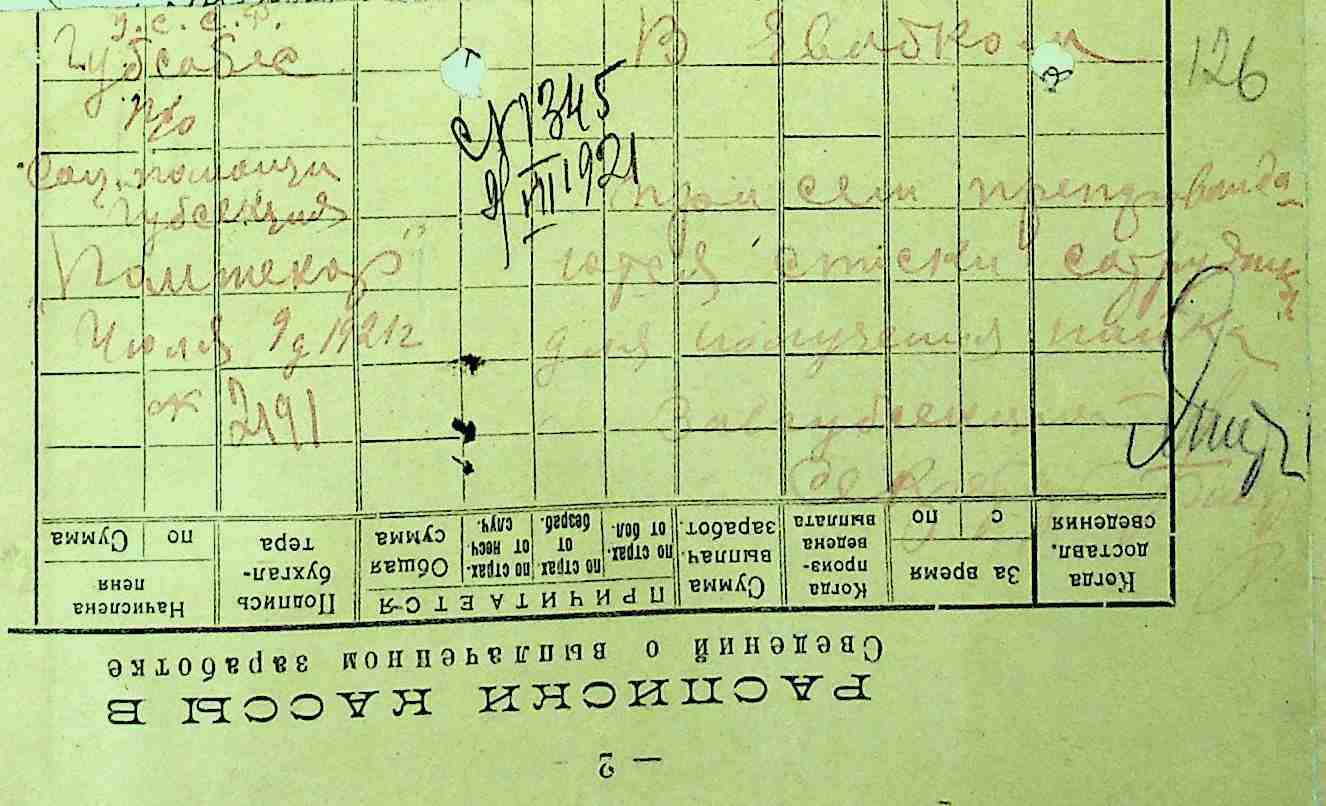 У.С.С.Р.
Губсобес
п/о
Соц. помощи
Губсекция
"Помтекор"
Июля 9 д 1921 г
№ 2191
В Евобком
126
№ 345
9/VII 1921
При сем препровожда-
ются списки сотрудниц
для получения пайка
Завгубсекции
Секрет
Начислена пеня
по
Сумма
Подпись бухгал-
тера
ПРИЧИТАЕТСЯ
Общая сумма
по страх. от несч случ.
по страх от безраб.
по страх. от бол.
Сумма выплач. заработ.
Когда произ-
ведена выплата
За время
с
по
Когда доставл. сведения
РАСПИСКИ КАССЫ В
Сведений о выплаченном заработке
— 2